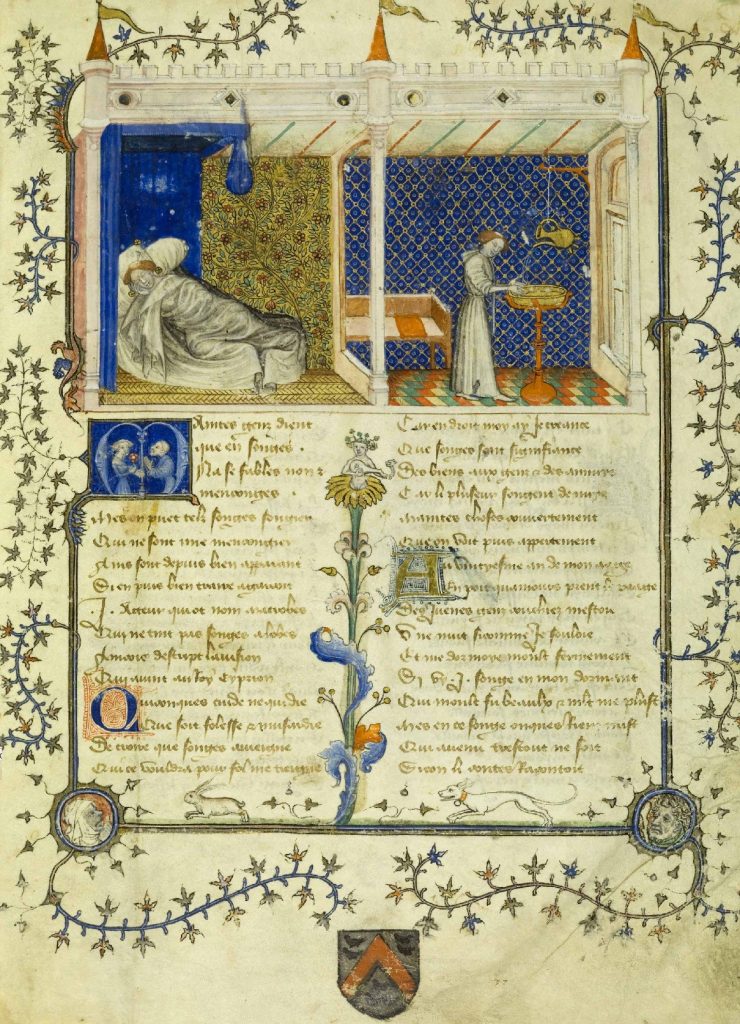 Maintes gens dient
que en songes .
Na se fables non &
mencongES .
Mes on puet telz songes songier
Qui ne sont mie mencongier
Ains sont depuis bien apparant
Si en puis bien traire a garant
.J. Acteur qui ot non macrobes
Qui ne tint pas songes a lobes
Aincois descript la vision
Qui avint au roy Cyprion
Quiconques cuide ne qui die
Que soit folesse & musardie
De croire que songes aviegne
Qui ce vouldra pour fol me tiengne
Car en droit moy ay je creance
Que songes soit signifiance
Des biens aux gens & des annuys
Car li pluseur songent de nuys
Maintes choses couvertement
Que on voit puis appertement
Au vintyesme an de mon aage
Ou point quamours prent le paage
Des juenes gens couchiez mestoie
Une nuit si comme je souloie
Et me dormoye moult forment
Si vy .J. songe en mon dormant
Qui moult fu beaulx & mlt me plust
Mes en ce songe onques riens
Qui avenu trestout ne soit
Si con li contes Racontoit